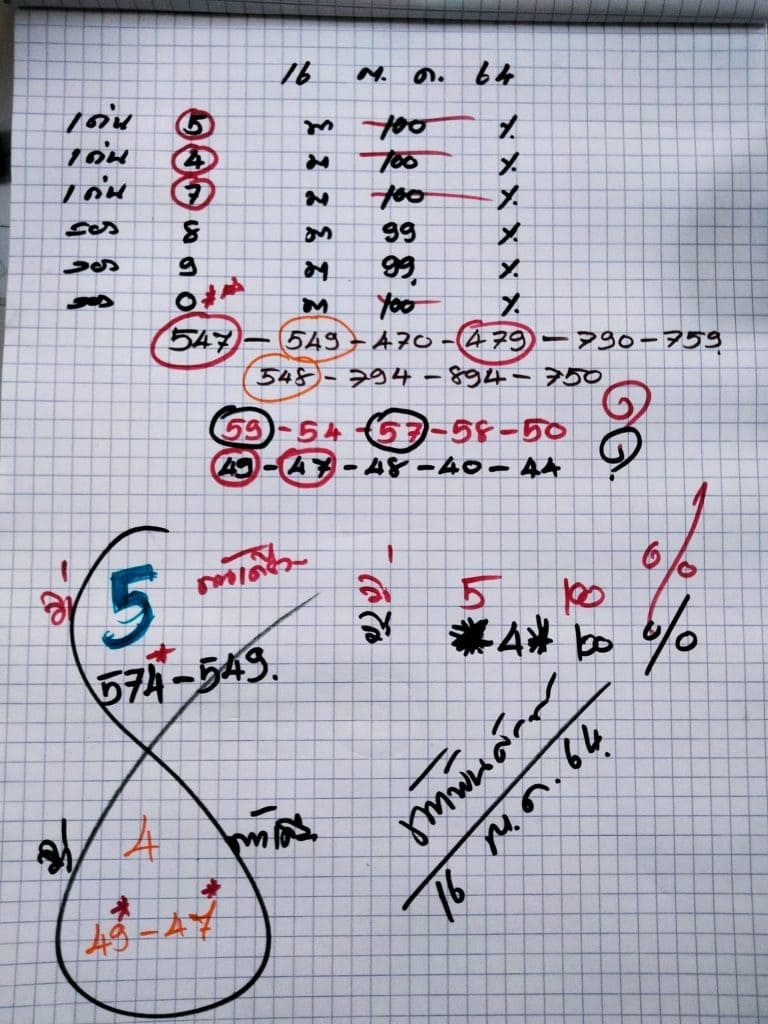 16 ต. ค. 64
1 เด่น 5 มา 100 %
1 เด่น 4 มา 100 %
1 เด่น 7 มา 100 %
รอง 8 มา 99 %
รอง 9 มา 99 %
รอง 0 ** มา 100 %
547 - 549 - 470 - 479 - 790 - 759
548 - 794 - 894 - 750
59 - 54 - 57 - 58 - 50
49 - 47 - 48 - 40 - 44
5
5 100 %
*4* 100 %
574* - 549.
4
49* - 47*
16 ต. ค. 64.